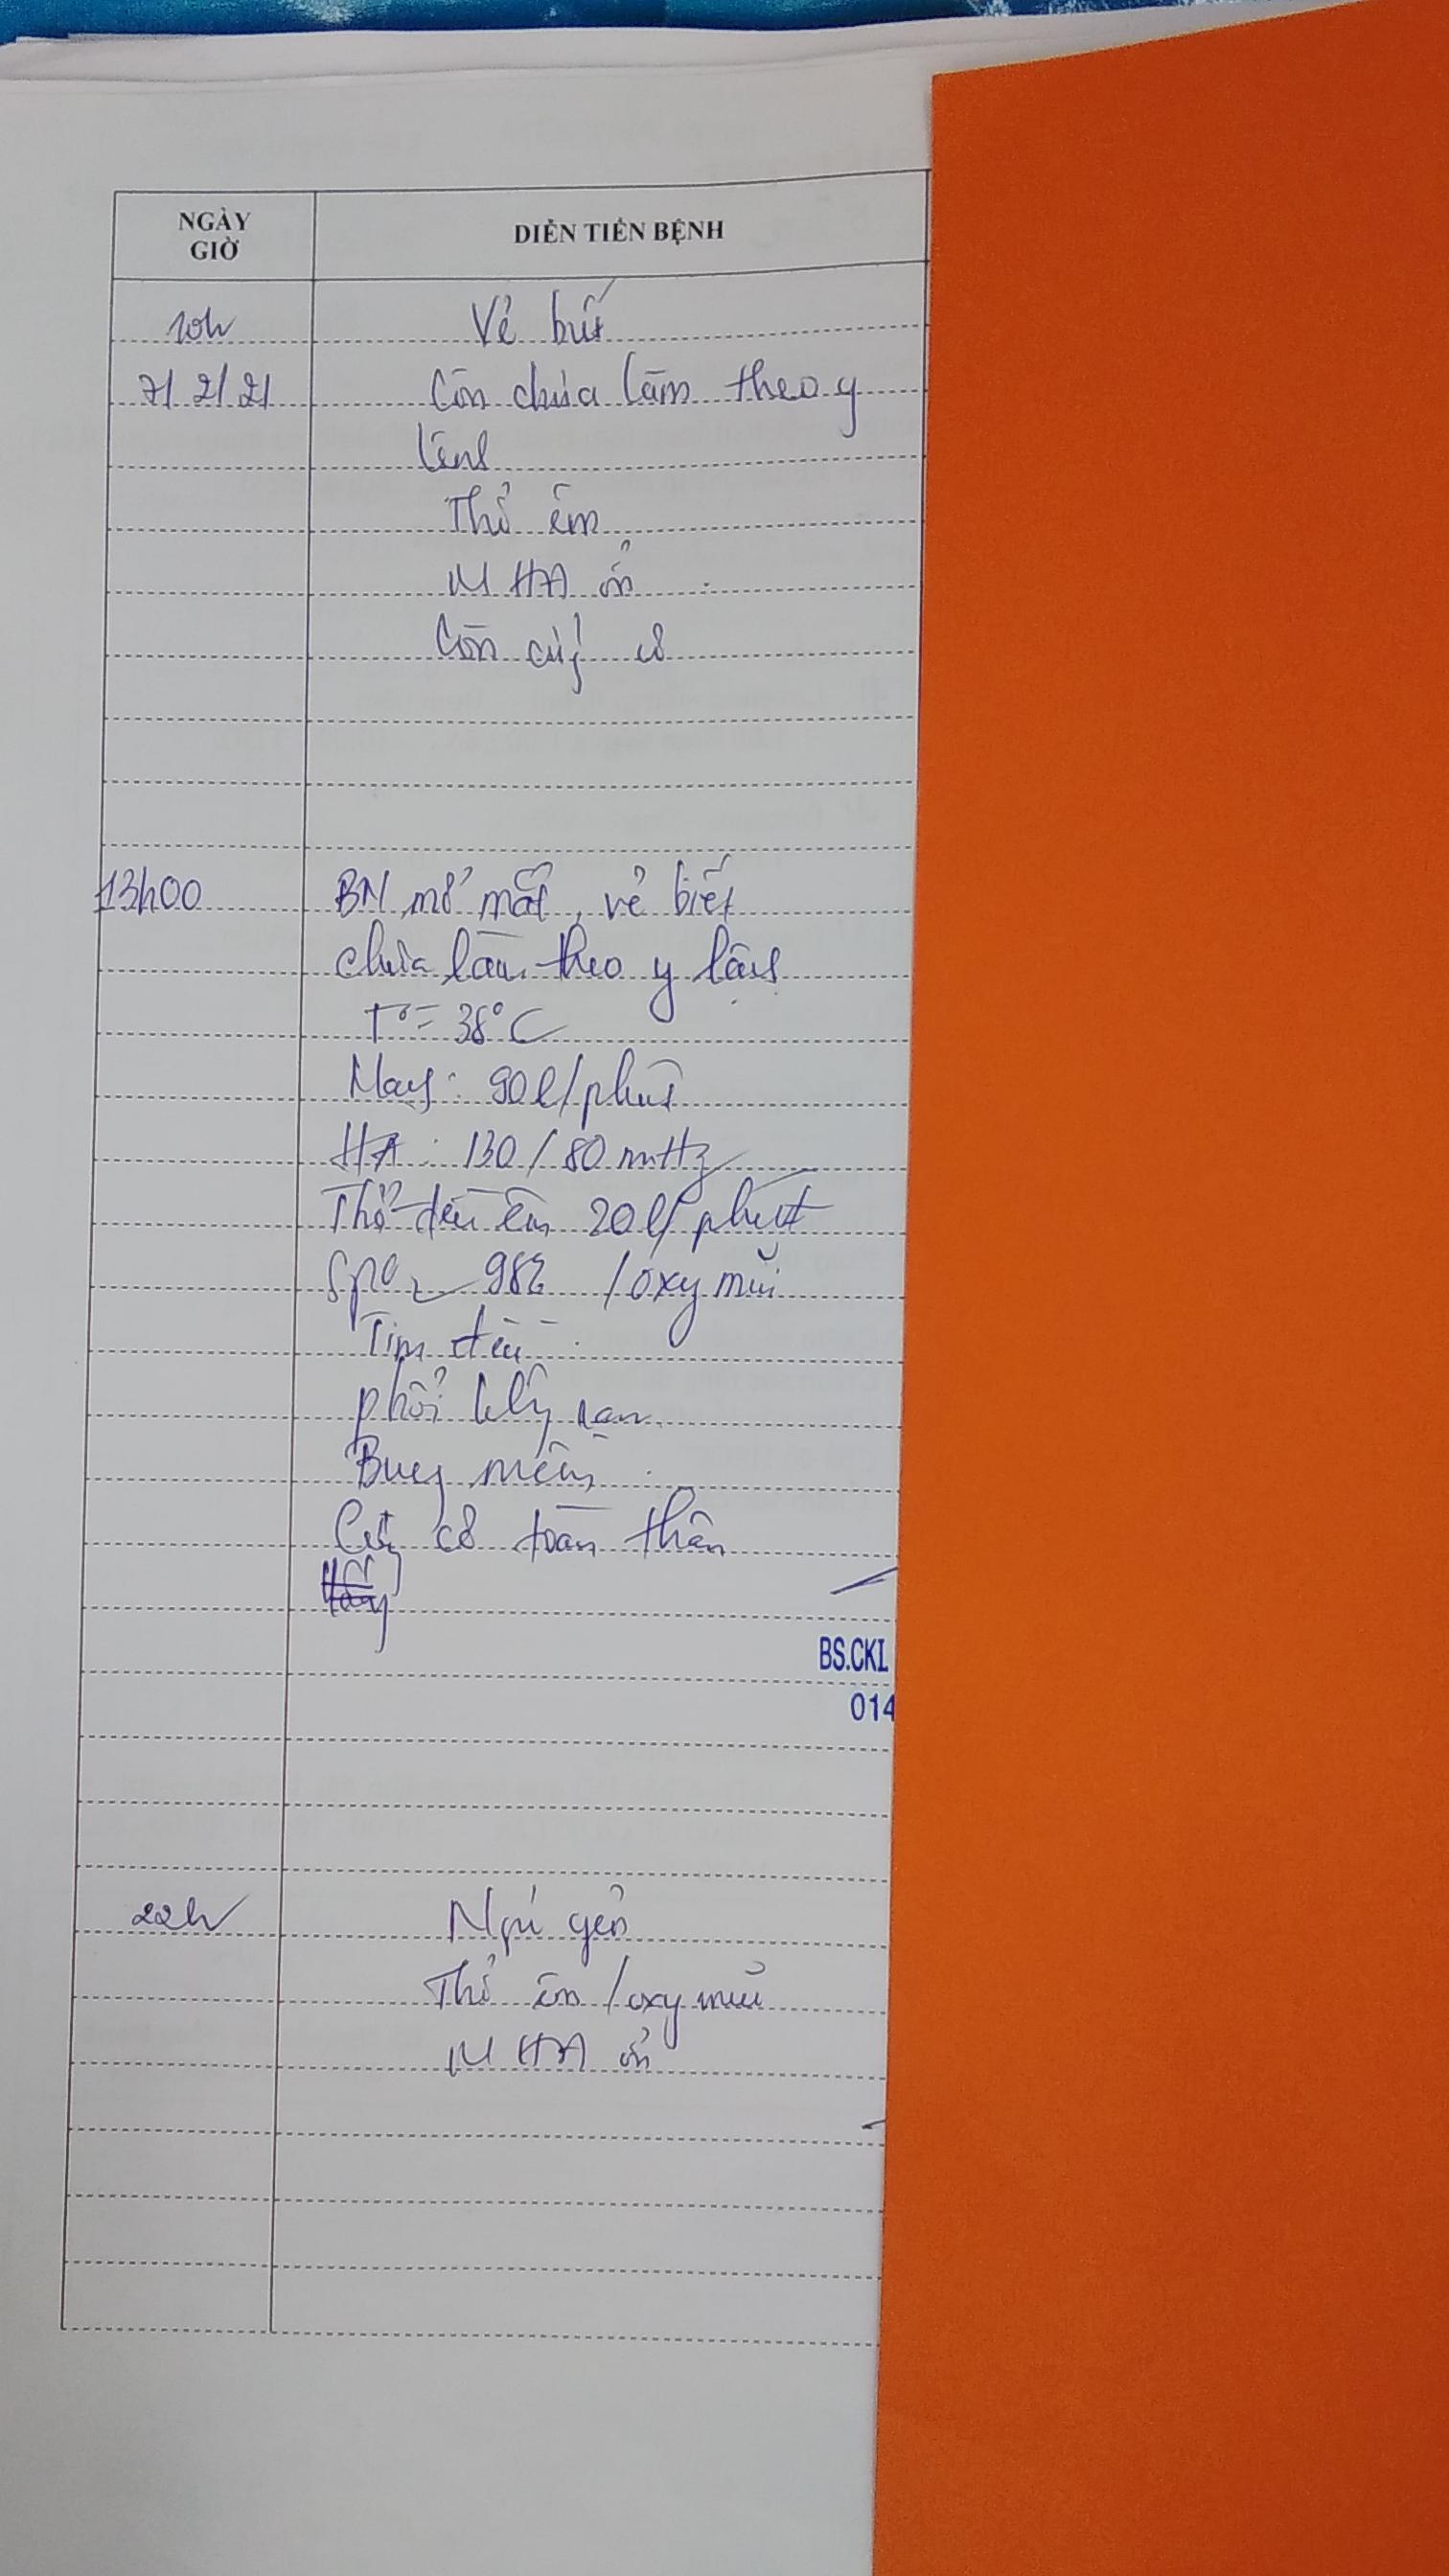 NGÀY
GIỜ
DIỄN TIẾN BỆNH
10h
Vẻ biết
7/2/21
Còn chưa làm theo y
lệnh
Thở êm
M HA ổn
Còn cứng cơ
13h00
BN mở mắt, vẻ biết
chưa làm theo y lệnh
T° = 38°C
Mạng: 90 l/phút
HA: 130/80 mmHg
Thở đều êm 20 l/phút
SpO2 98% /oxy mũi
Tim đều
phổi không ran
Bụng mềm
Cứng cơ toàn thân
BS.CKI
014
22h
Ngủ yên
Thở êm /oxy mũi
M HA ổn